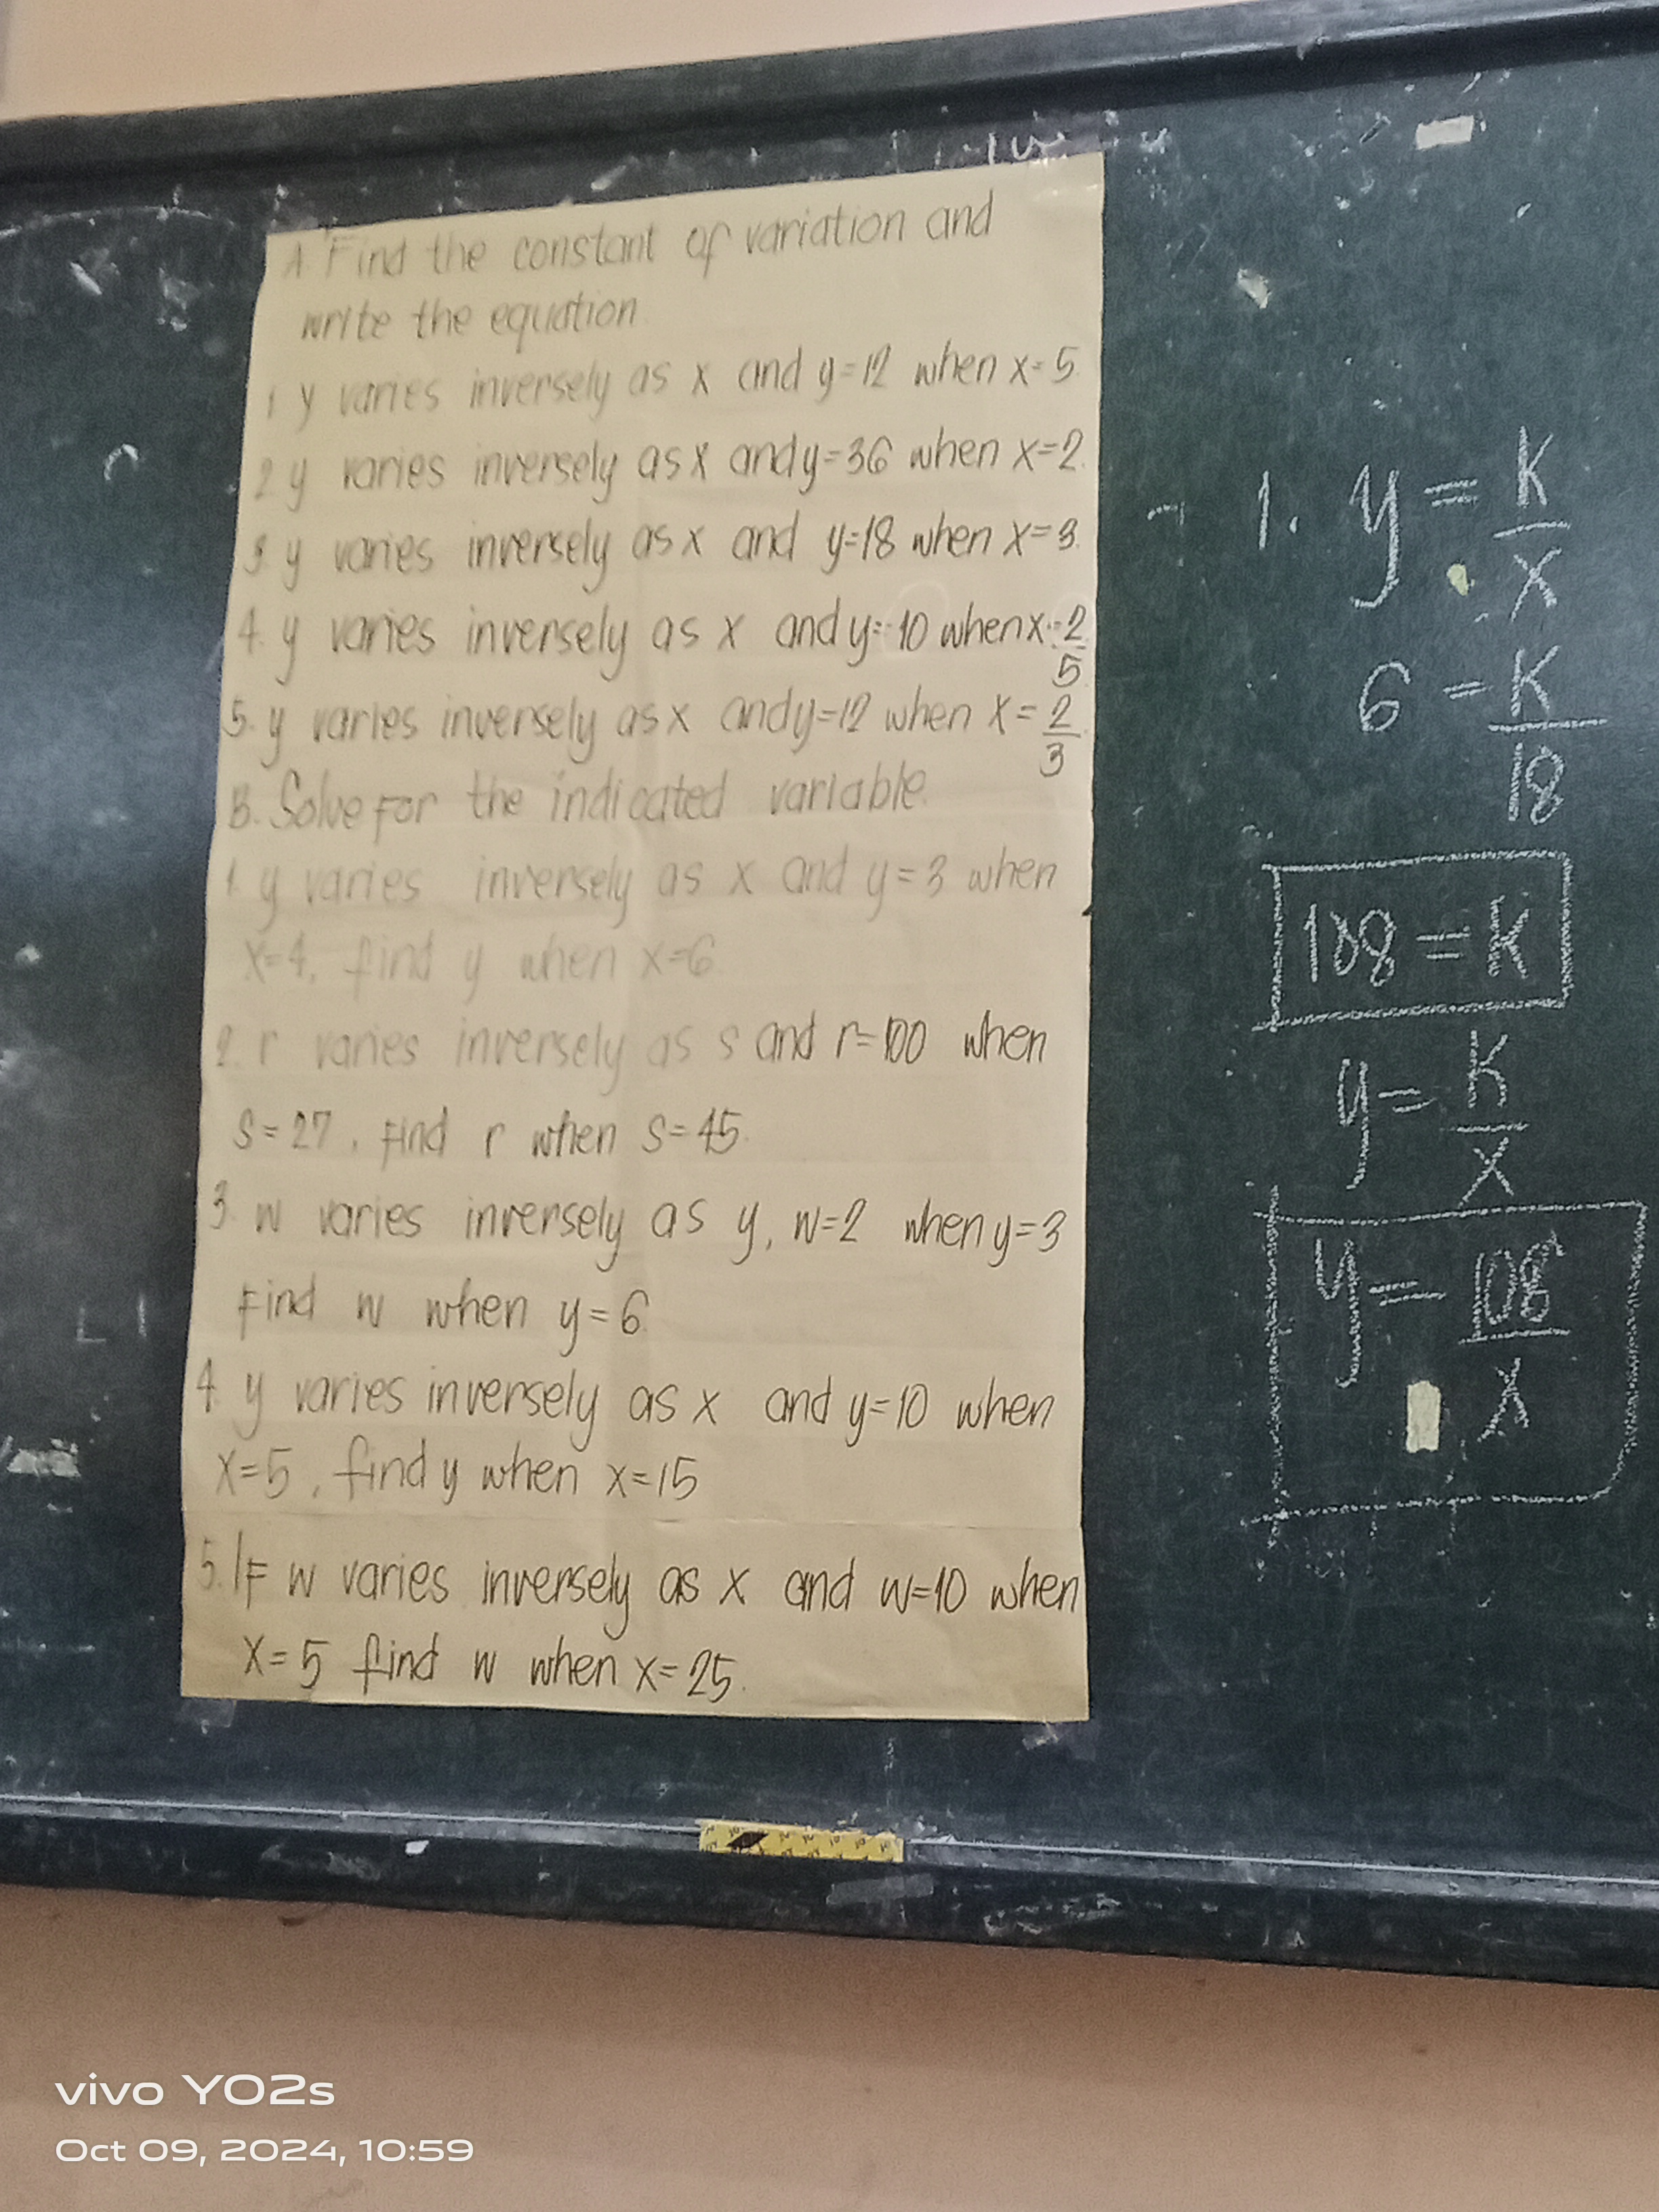 A. Find the constant of variation and
write the equation.
1 y varies inversely as x and y=12 when x=5.
2 y varies inversely as x and y=36 when x=2.
3. y varies inversely as x and y=18 when x=3.
4. y varies inversely as x and y=10 when x=2/5
5. y varies inversely as x and y=12 when x=2/3.
B. Solve For the indicated variable.
1. y varies inversely as x and y=3 when
x=4, find y when x=6
2. r varies inversely as s and r=100 when
s=27, Find r when s=45.
3. w varies inversely as y, w=2 when y=3
Find w when y=6.
4. y varies inversely as x and y=10 when
x=5, find y when x=15
5. IF w varies inversely as x and w=10 when
x=5 find w when x=25.
1. y = K/X
6 = K/18
108 = K
y = K/X
y = 108/X
vivo Y02s
Oct 09, 2024, 10:59